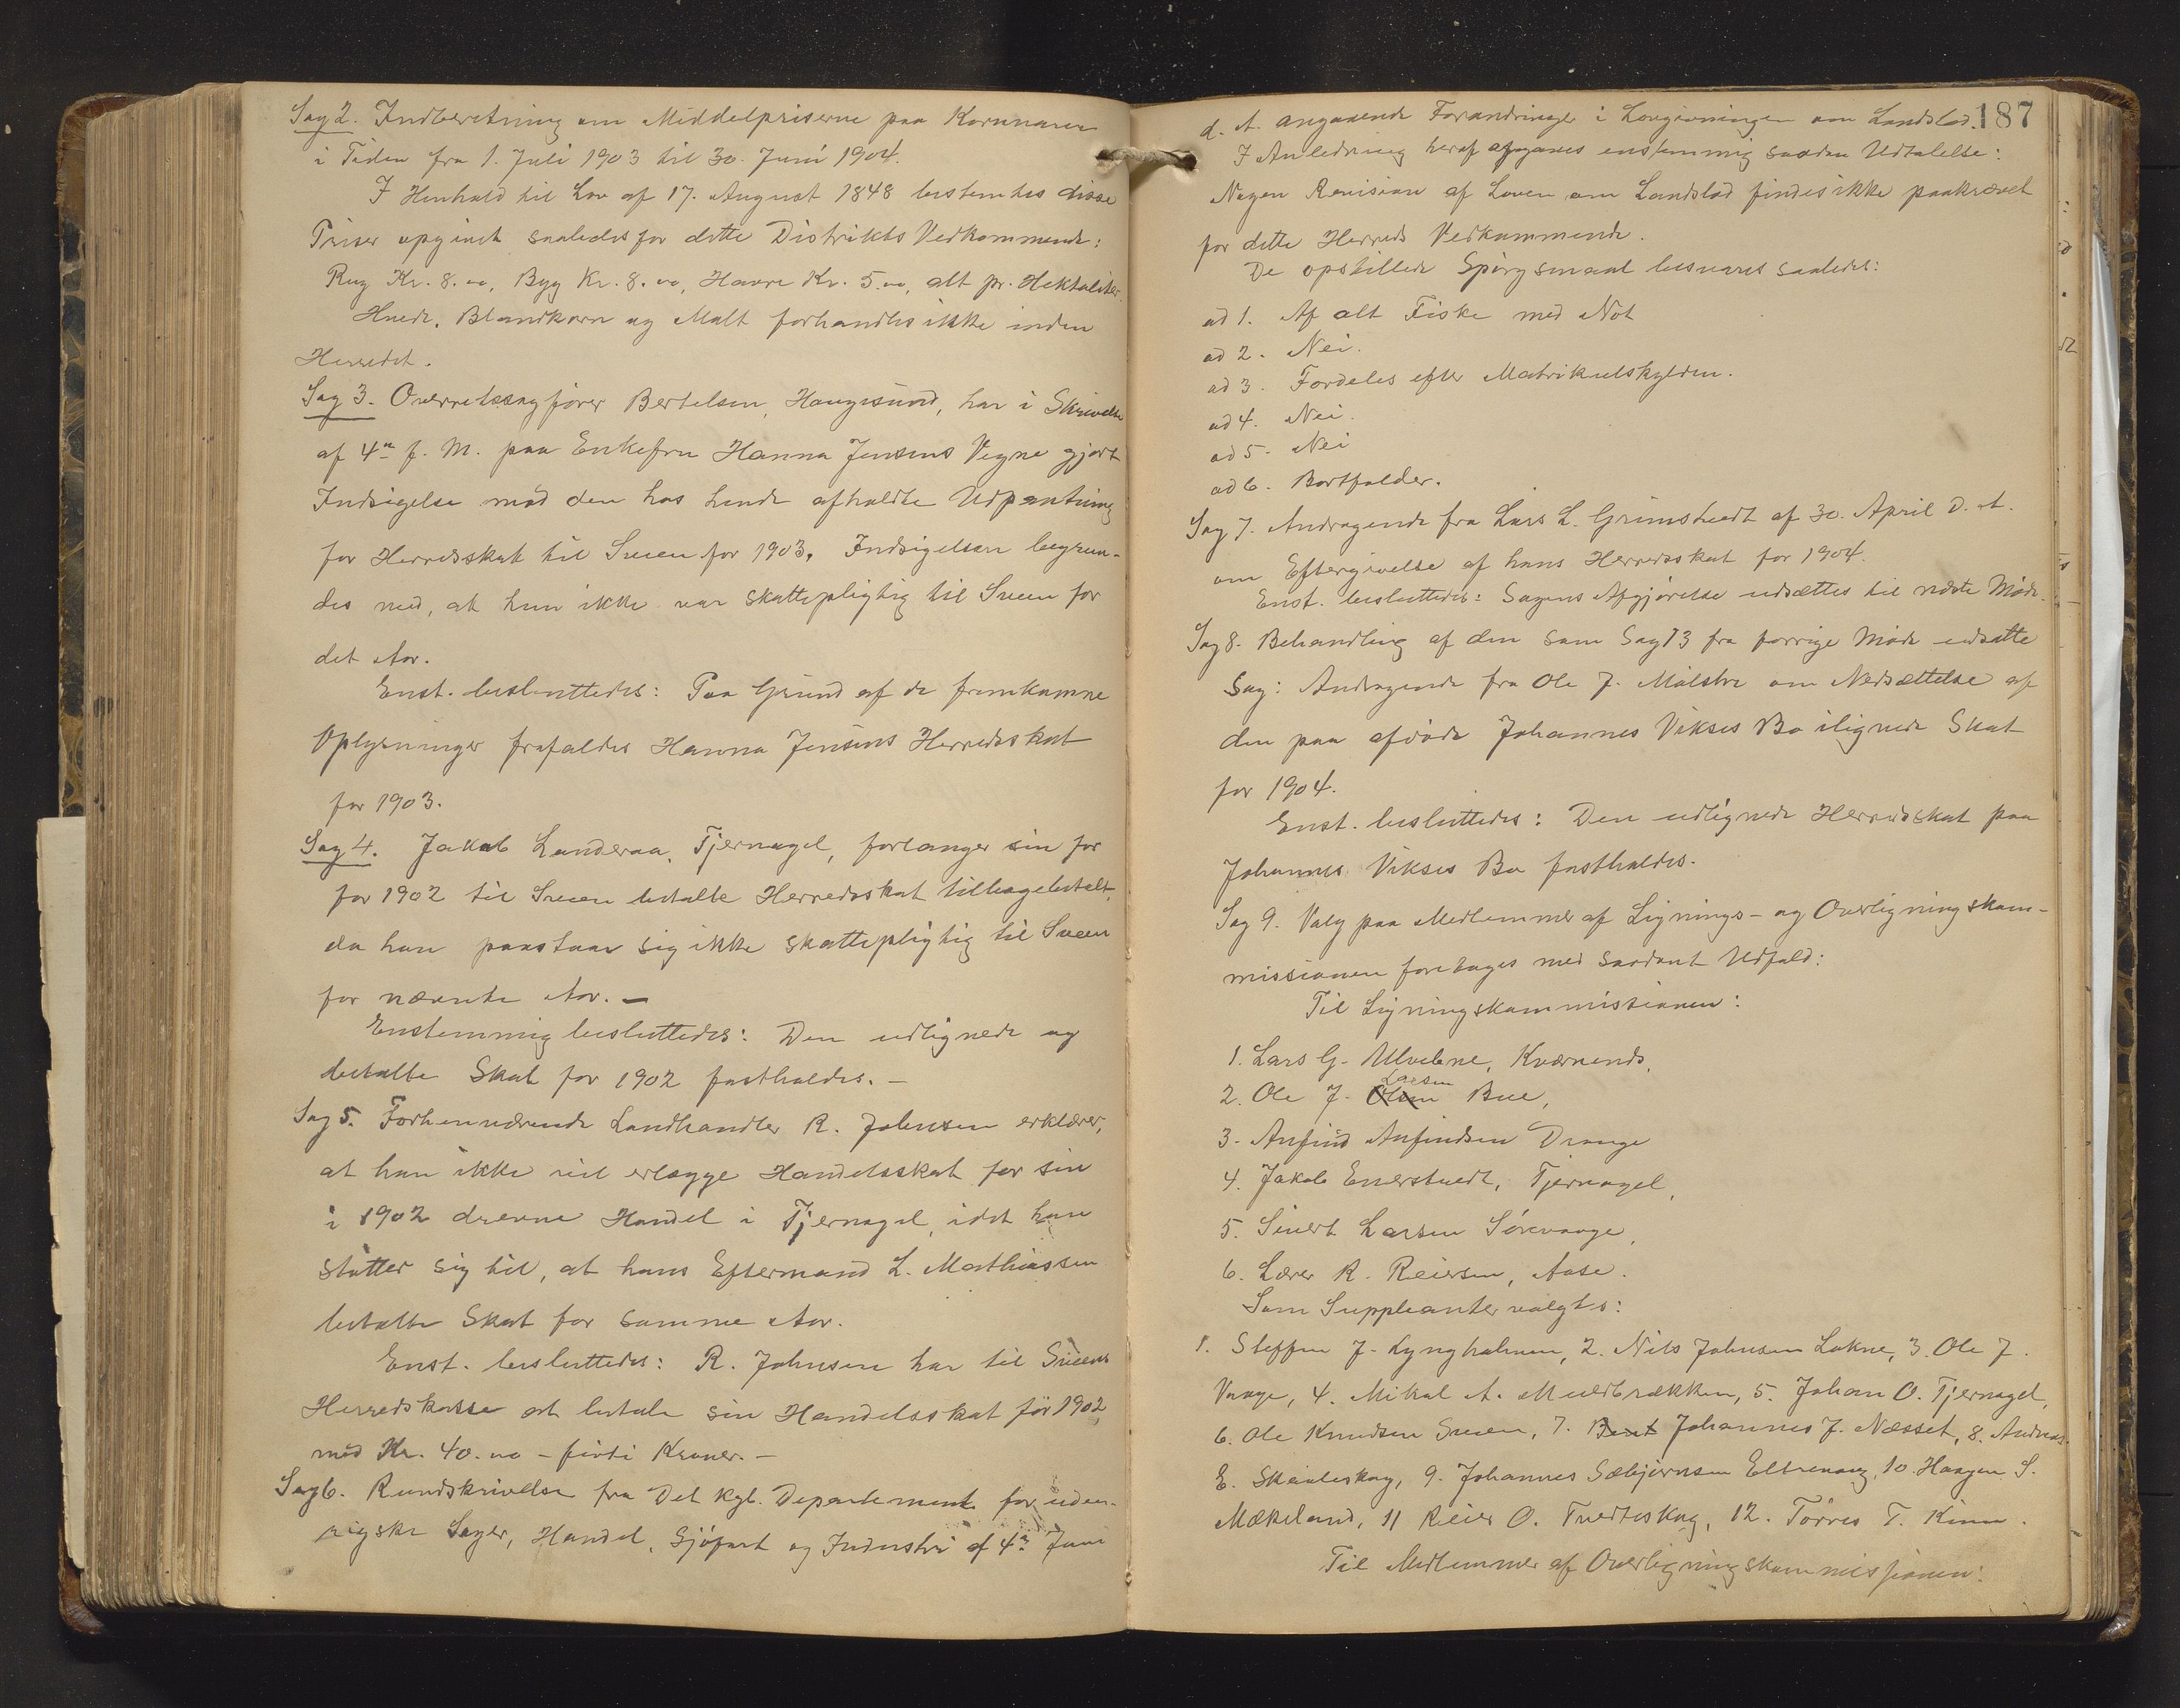 Sag 2. Indberetning om Middelpriserne paa Kornvarer
i Tiden fra 1. Juli 1903 til 30. Juni 1904.
I Henhold til Lov af 17. August 1848 bestemtes disse
Priser opgivet saaledes for dette Distrikts Vedkommende:
Rug Kr. 8.00, Byg Kr. 8.00, Havre Kr. 5.00, alt pr. Hektoliter.
Hvede, Blandkorn og Malt forhandles ikke inden
Herredet.
Sag 3. Overretssagfører Bertelsen, Haugesund, har i Skrivelse
af 4de f. M. paa Enkefru Hanna Jensens Vegne gjort
Indsigelse mod den hos hende afholdte Udpantning
for Herredsskat til Sveen for 1903. Indsigelsen begrun-
des med, at hun ikke var skattepligtig til Sveen for
det Aar.
Enst. besluttedes: Paa Grund af de fremkomne
Oplysninger frafaldes Hanna Jensens Herredsskat
for 1903.
Sag 4. Jakob Landeraa, Tjernagel, forlanger sin for
for 1902 til Sveen betalte Herredsskat tilbagebetalt,
da han paastaar sig ikke skattepligtig til Sveen
for nævnte Aar. –
Enstemmig besluttedes: Den udlignede og
betalte Skat for 1902 fastholdes. –
Sag 5. Forhenværende Landhandler R. Johnsen erklærer,
at han ikke vil erlægge Handelsskat for sin
i 1902 drevne Handel i Tjernagel, idet han
støtter sig til, at hans Eftermand L. Mathiassen
betalte Skat for samme Aar.
Enst. besluttedes: R. Johnsen har til Sveens
Herredskasse at betale sin Handelsskat for 1902
med Kr. 40.00 – førti Kroner. –
Sag 6. Rundskrivelse fra Det kgl. Departement for uden-
rigske Sager, Handel, Sjøfart og Industri af 4de Juni
187
d. A. angaaende Forandringer i Lovgivningen om Landslod.
I Anledning heraf afgaves enstemmig saadan Udtalelse:
Nogen Revision af Loven om Landslod findes ikke paakrævet
for dette Herreds Vedkommende.
De opstillede Spørgsmaal besvares saaledes:
ad 1. Af alt Fiske med Not
ad 2. Nei.
ad 3. Fordeles efter Matrikulskylden.
ad 4. Nei.
ad 5. Nei
ad 6. Bortfalder.
Sag 7. Andragende fra Lars L. Grimstvedt af 30. April d. A.
om Eftergivelse af hans Herredsskat for 1904.
Enst. besluttedes: Sagens Afgjørelse udsættes til næste Møde.
Sag 8. Behandling af den som Sag 13 fra forrige Møde udsatte
Sag: Andragende fra Ole J. Målstre om Nedsættelse af
den paa afdøde Johannes Vikses Bo ilignede Skat
for 1904.
Enst. besluttedes: Den udlignede Herredsskat paa
Johannes Vikses Bo fastholdes.
Sag 9. Valg paa Medlemmer af Lignings- og Overligningskom-
missionen foretages med saadant Udfald:
Til Ligningskommissionen:
1. Lars G. Ulvebne, Kværnends,
Larsen
2. Ole J. Olsen Bue,
3. Anfind Anfindsen Drange
4. Jakob Enerstvedt, Tjernagel,
5. Sivert Larsen Sørvaage,
6. Lærer R. Reiersen, Aase.
Som Suppleanter valgtes:
1. Steffen J. Lyngholmen, 2. Nils Johnsen Lokne, 3. Ole J.
Vaage, 4. Mikal A. Mulebrækken, 5. Johan O. Tjernagel,
6. Ole Knudsen Sveen, 7. Bent Johannes J. Næsset, 8. Andreas
E. Skealeskog, 9. Johannes Sæbjørnsen Eltrevaag, 10. Haagen S.
Mækeland, 11 Reier O. Tvedteskog, 12. Tørres T. Kinn.
Til Medlemmer af Overligningskommissionen: